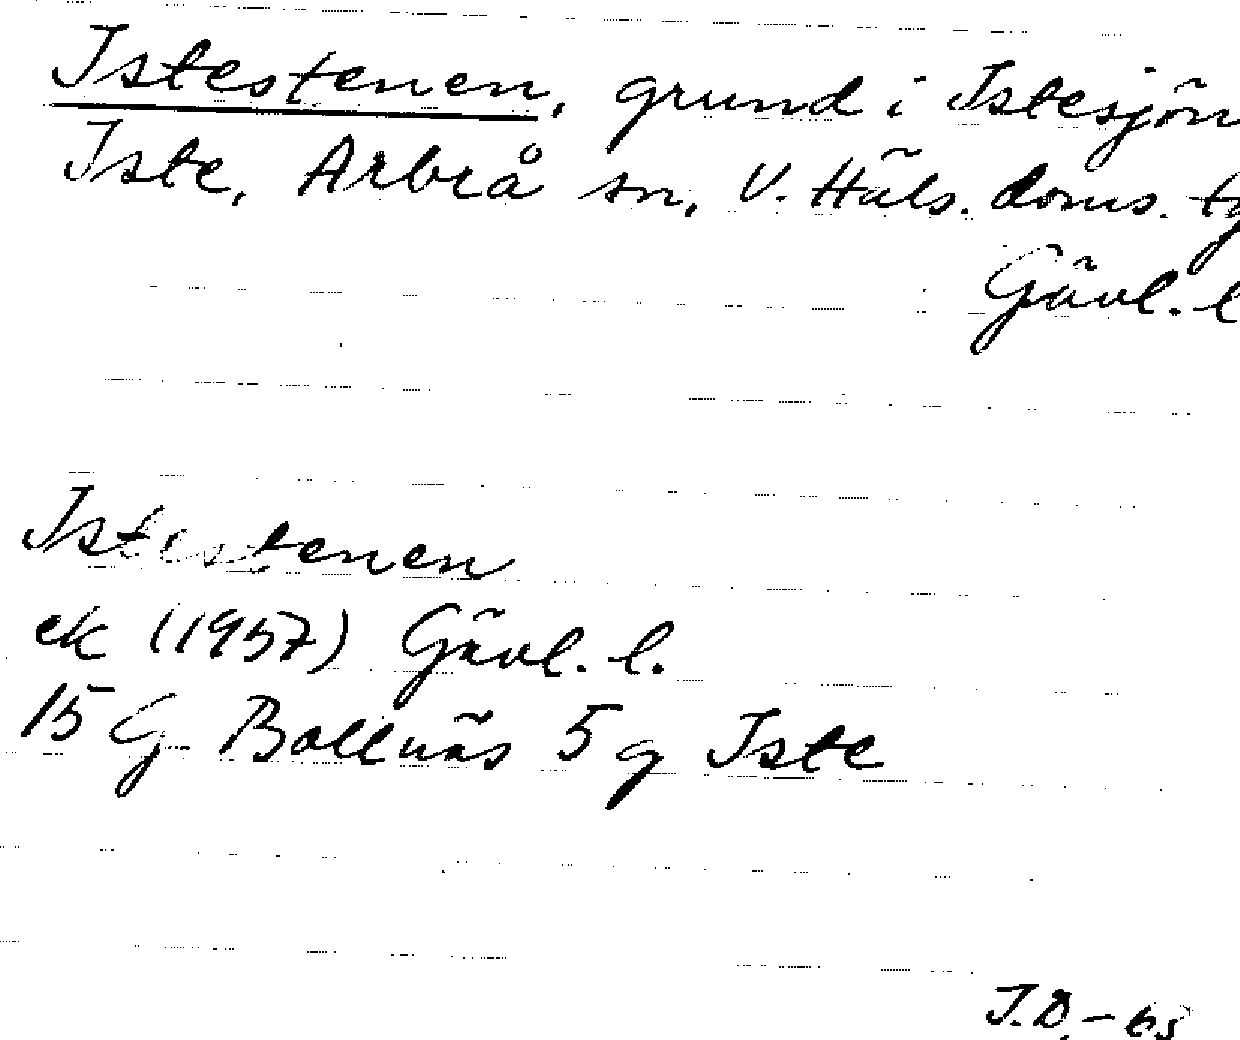 Istestenen, grund i Istesjön
Iste, Arbrå sn, V. Häls. doms. tg
Gävl. l
Istestenen
ek (1957) Gävl. l.
15 G Bollnäs 5 g Iste
J.D. - 63